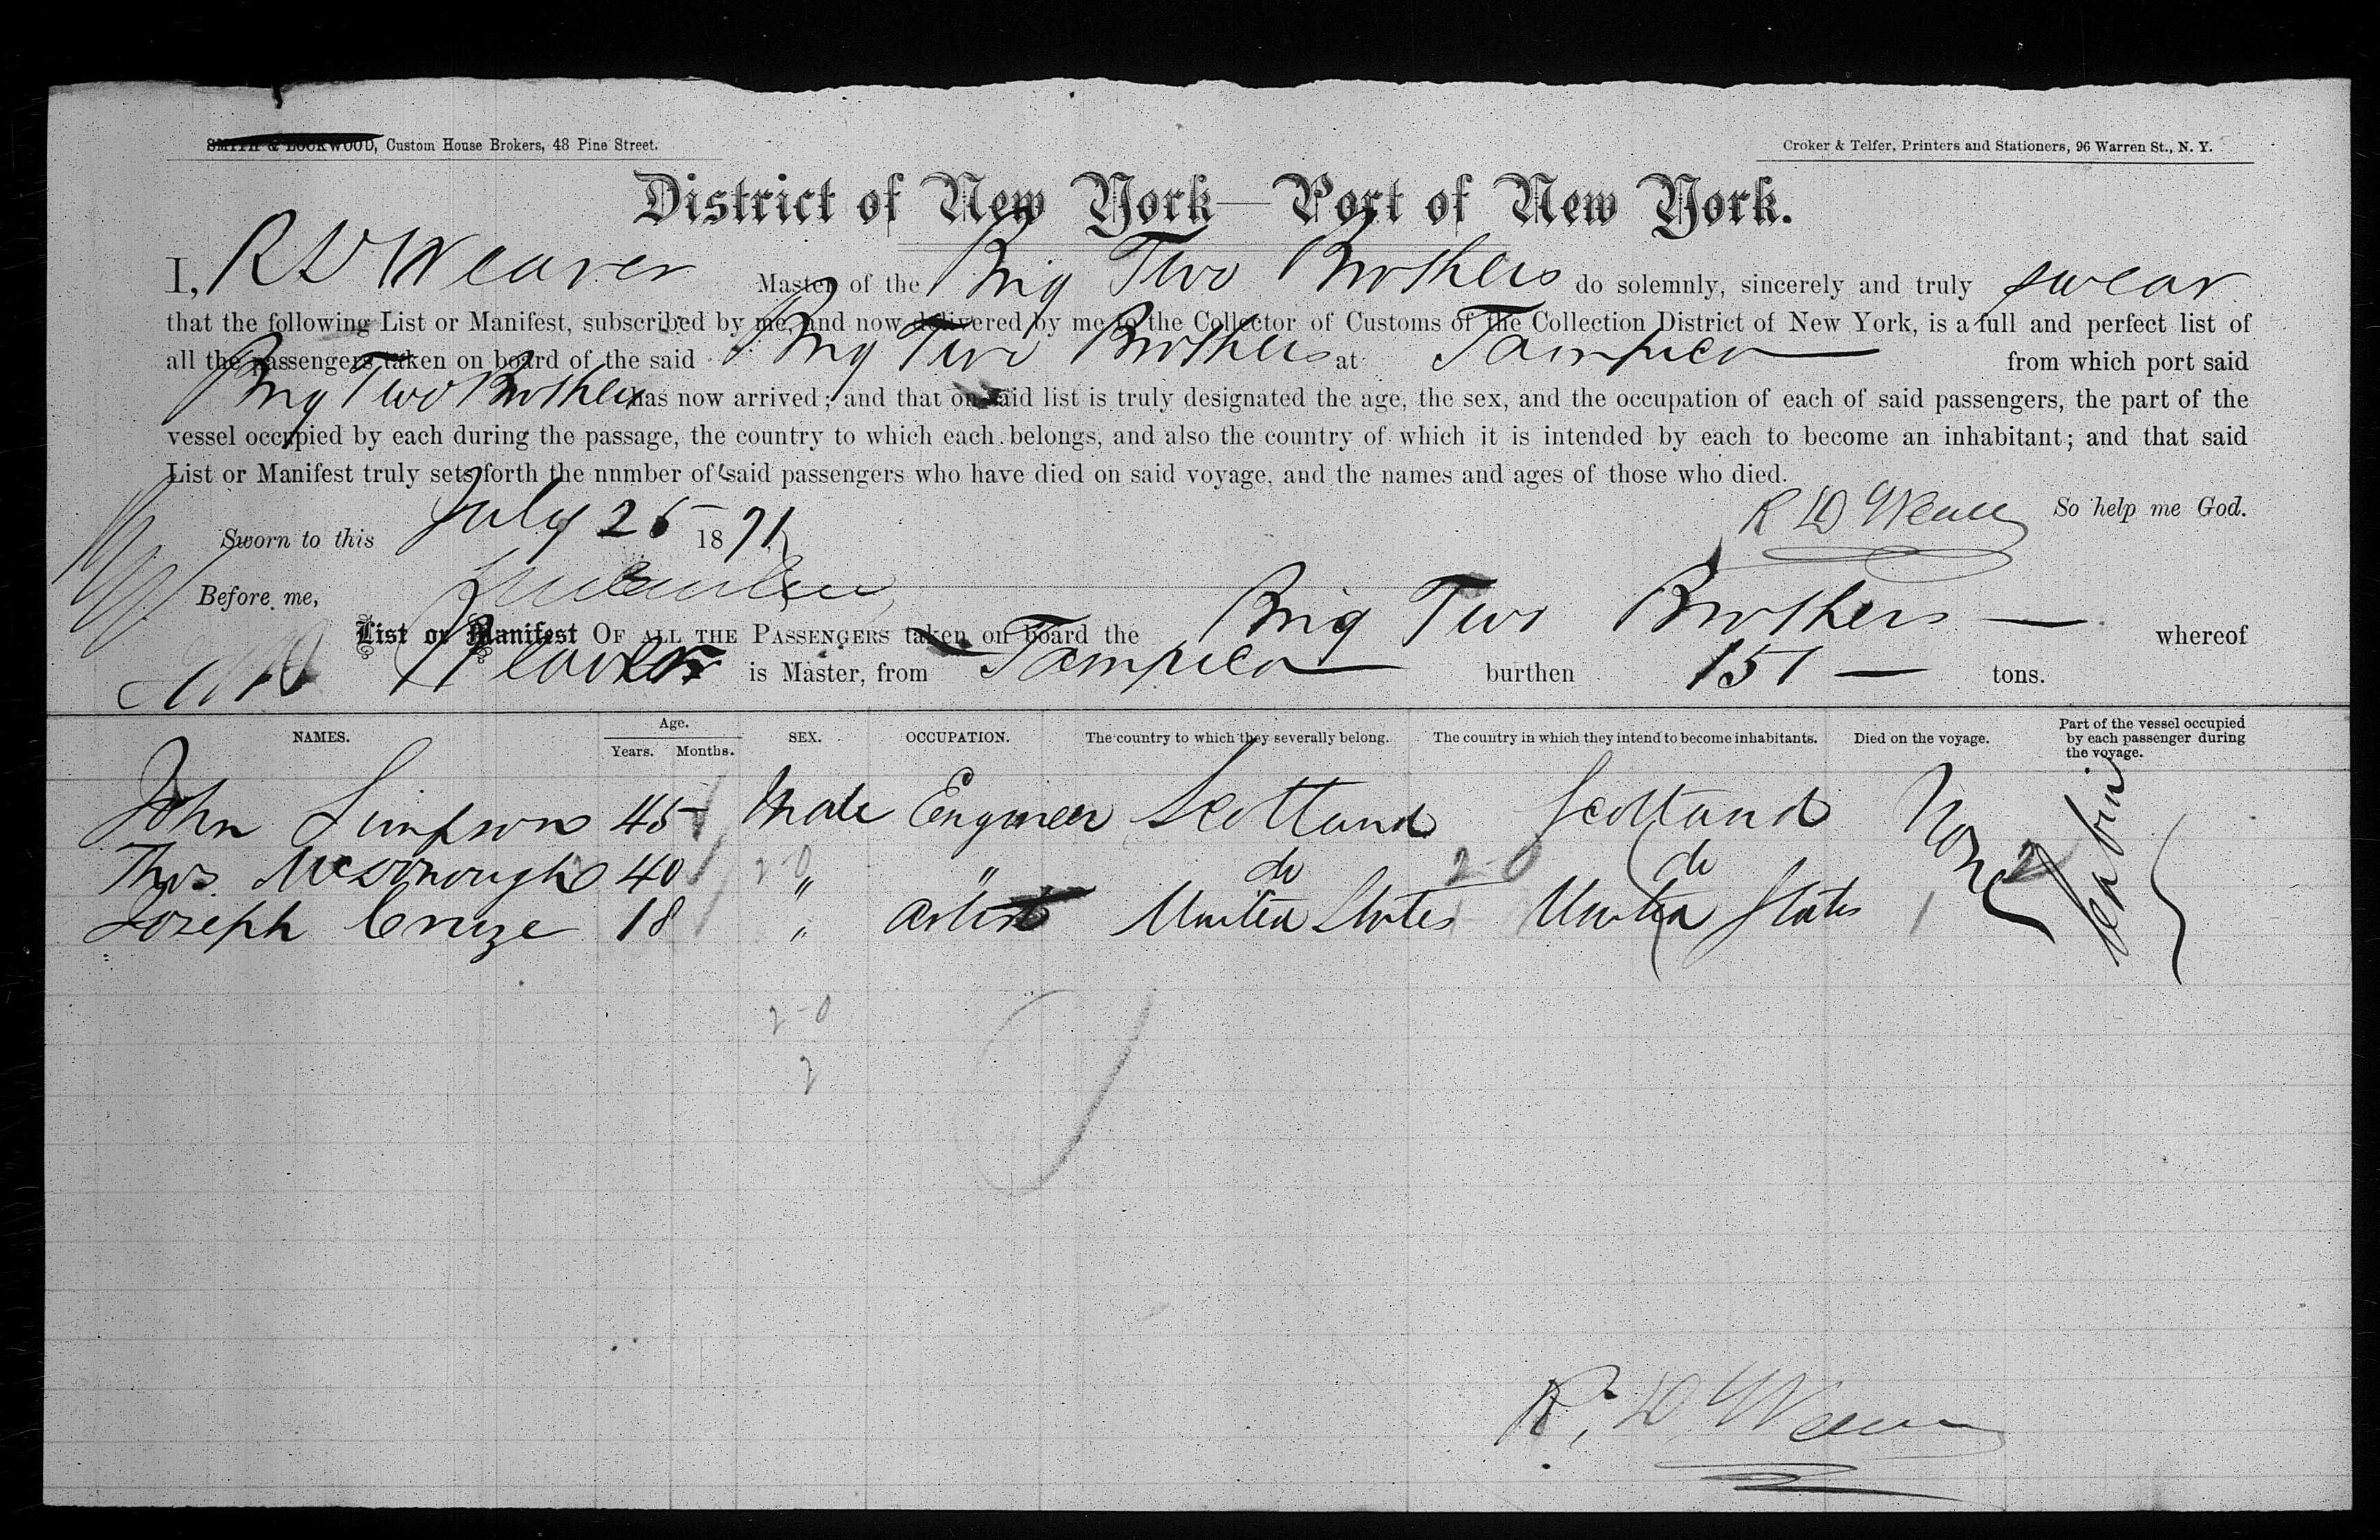 SMITH & LOCKWOOD, Custom House Brokers, 48 Pine Street.
Croker & Telfer, Printers and Stationers, 96 Warren St., N. Y.
District of New York—Port of New York.
I, R D Weaver Master of the Brig Two Brothers do solemnly, sincerely and truly swear
that the following List or Manifest, subscribed by me, and now delivered by me to the Collector of Customs of the Collection District of New York, is a full and perfect list of
all the passengers taken on board of the said Brig Two Brothers at Tampico from which port said
Brig Two Brothers has now arrived; and that on said list is truly designated the age, the sex, and the occupation of each of said passengers, the part of the
vessel occupied by each during the passage, the country to which each belongs, and also the country of which it is intended by each to become an inhabitant; and that said
List or Manifest truly sets forth the nnmber of said passengers who have died on said voyage, and the names and ages of those who died.
R D Weaver So help me God.
Sworn to this July 25 1871
Before me,
List or Manifest OF ALL THE PASSENGERS taken on board the Brig Two Brothers — whereof
Weaver is Master, from Tampico burthen 151 — tons.
NAMES. Age. Years. Months. SEX. OCCUPATION. The country to which they severally belong. The country in which they intend to become inhabitants. Died on the voyage. Part of the vessel occupied by each passenger during the voyage.
John Simpson 45 Male Engineer Scotland Scotland None Cabin
Thos McDonough 40 " " do do
2-0 2-0 2
Joseph Cruze 18 " Artist United States United States
2-0
2
R. D Weaver